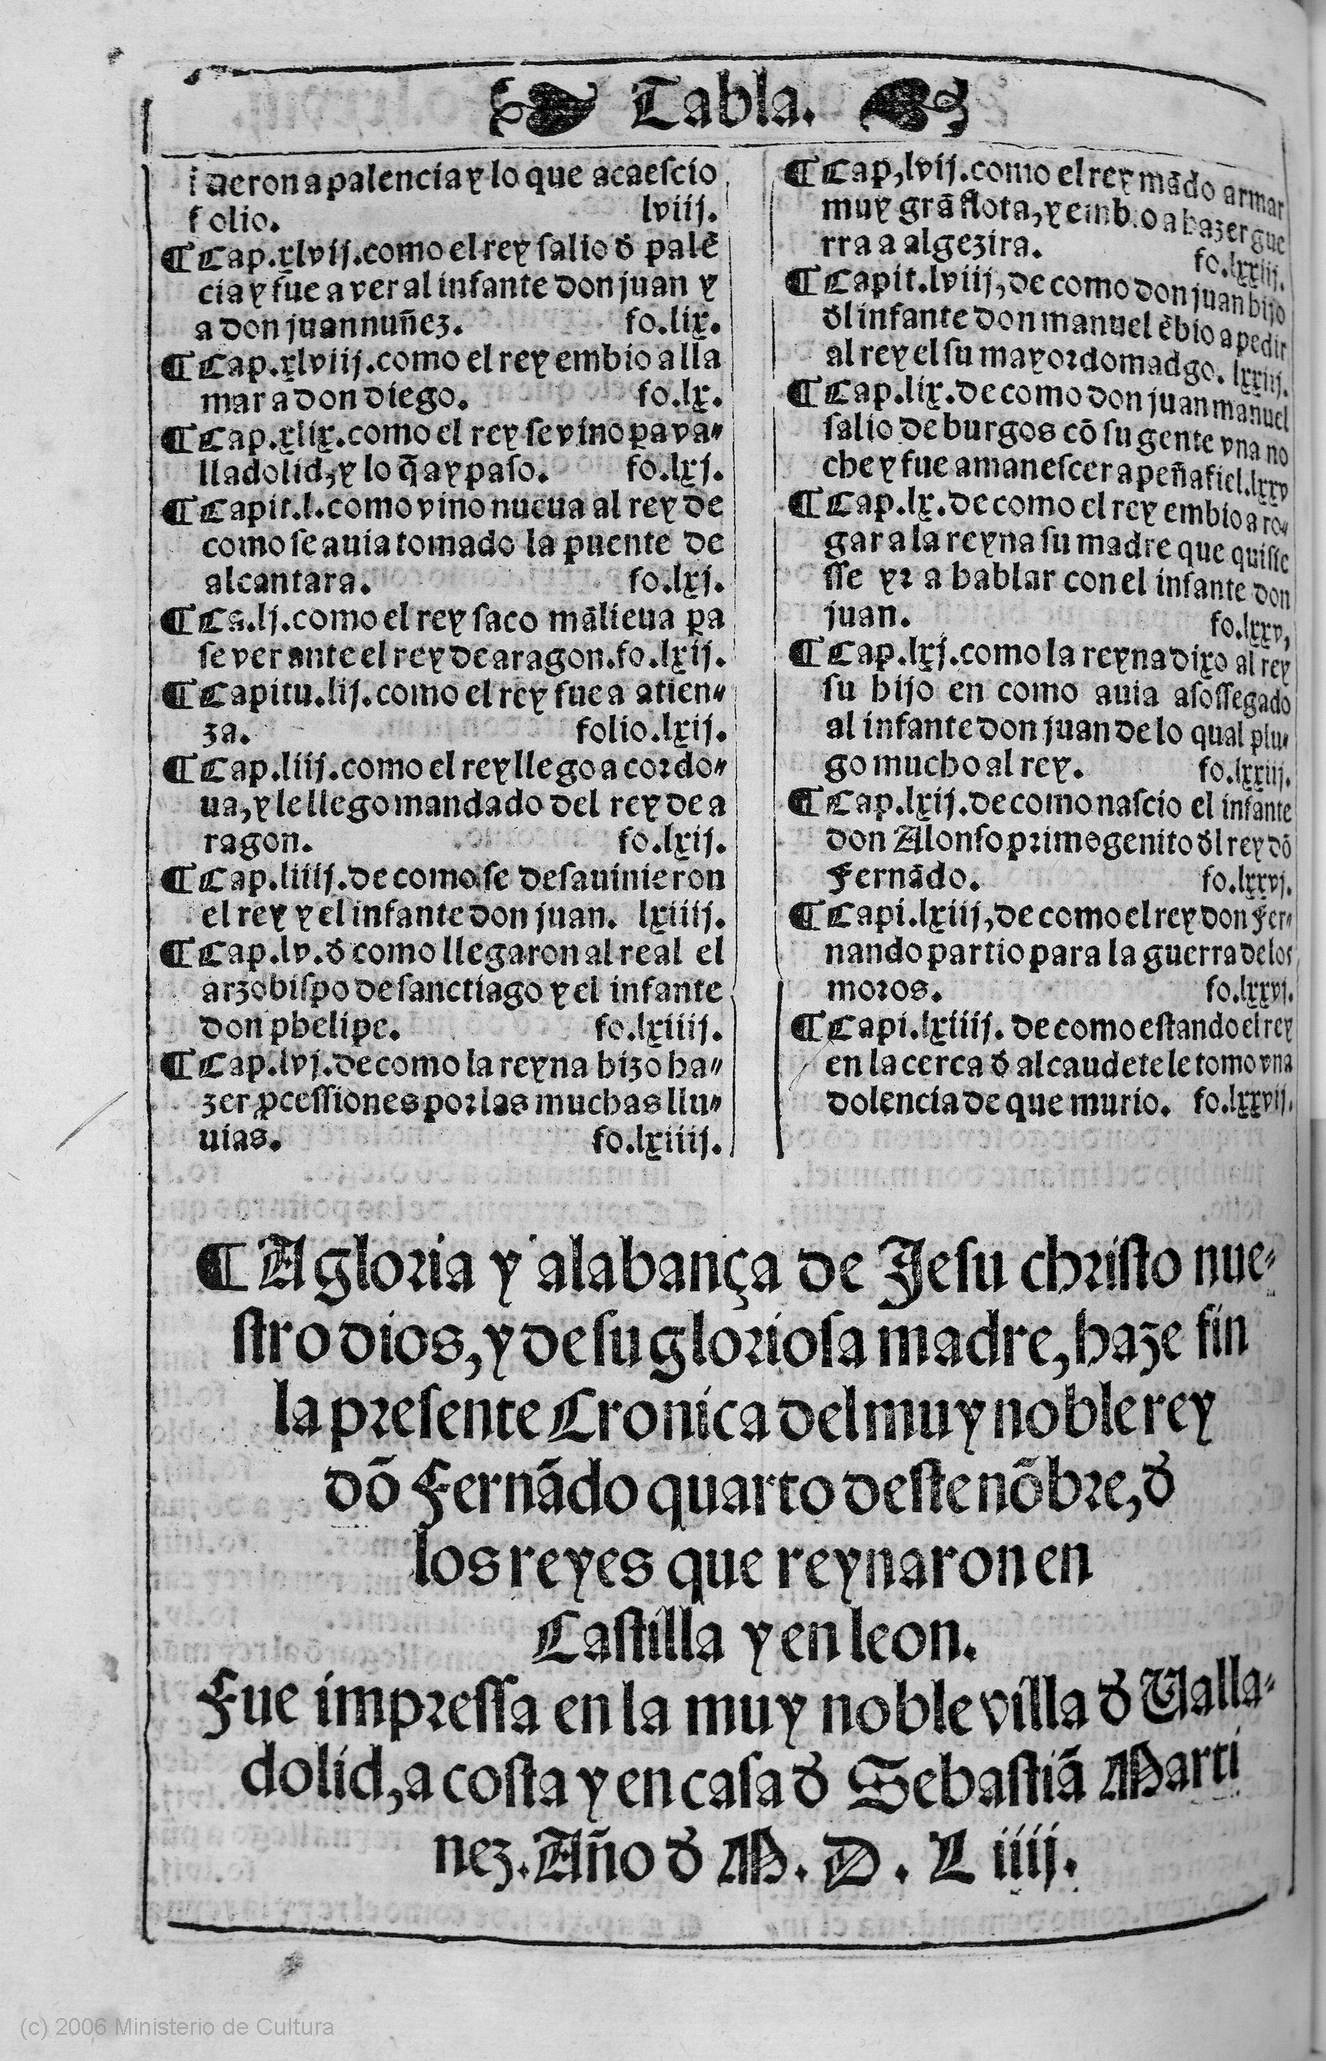 Tabla.
deron a palencia y lo que acaescio
folio. lviij.
¶ Cap.xlvij.como el rey salio đ palē
cia y fue a ver al infante don juan y
a don juan nuñez. fo.lix.
¶ Cap.xlviij.como el rey embio a lla
mar a don diego. fo.lx.
¶ Cap.xlix.como el rey se vino pa va-
lladolid,y lo q̄ ay paso. fo.lxj.
¶ Capit.l.como vino nueua al rey de
como se auia tomado la puente de
alcantara. fo.lxj.
¶ Ca.lj.como el rey saco mālieua pa
se ver ante el rey de aragon.fo.lxij.
¶ Capitu.lij.como el rey fue a atien-
za. folio.lxij.
¶ Cap.liij.como el rey llego a cordo-
ua,y le llego mandado del rey de a
ragon. fo.lxij.
¶ Cap.liiij.de como se desauinieron
el rey y el infante don juan. lxiiij.
¶ Cap.lv.đ como llegaron al real el
arzobispo de sanctiago y el infante
don phelipe. fo.lxiiij.
¶ Cap.lvj.de como la reyna hizo ha-
zer pcessiones por las muchas llu-
uias. fo.lxiiij.
¶ Cap,lvij.como el rey mādo armar
muy grā flota,y embio a hazer gue
rra a algezira. fo.lxxiij.
¶ Capit.lviij,de como don juan hijo
đl infante don manuel ēbio a pedir
al rey el su mayordomadgo. lxxiij.
¶ Cap.lix.de como don juan manuel
salio de burgos cō su gente vna no
che y fue amanescer a peñafiel.lxxv
¶ Cap.lx.de como el rey embio a ro-
gar a la reyna su madre que quisie
sse yr a hablar con el infante don
juan. fo.lxxv,
¶ Cap.lxj.como la reyna dixo al rey
su hijo en como auia asossegado
al infante don juan de lo qual plu-
go mucho al rey. fo.lxxiij.
¶ Cap.lxij.de como nascio el infante
don Alonso primogenito đl rey dō
Fernādo. fo.lxxvj.
¶ Capi.lxiij,de como el rey don Fer-
nando partio para la guerra de los
moros. fo.lxxvj.
¶ Capi.lxiiij. de como estando el rey
en la cerca đ alcaudete le tomo vna
dolencia de que murio. fo.lxxvij.
¶ A gloria y alabança de Jesu christo nue-
stro dios,y de su gloriosa madre,haze fin
la presente Cronica del muy noble rey
dō Fernādo quarto deste nōbre,đ
los reyes que reynaron en
Castilla y en leon.
Fue impressa en la muy noble villa đ Ualla-
dolid,a costa y en casa đ Sebastiā Marti
nez.Año đ M.D.Liiij.
(c) 2006 Ministerio de Cultura